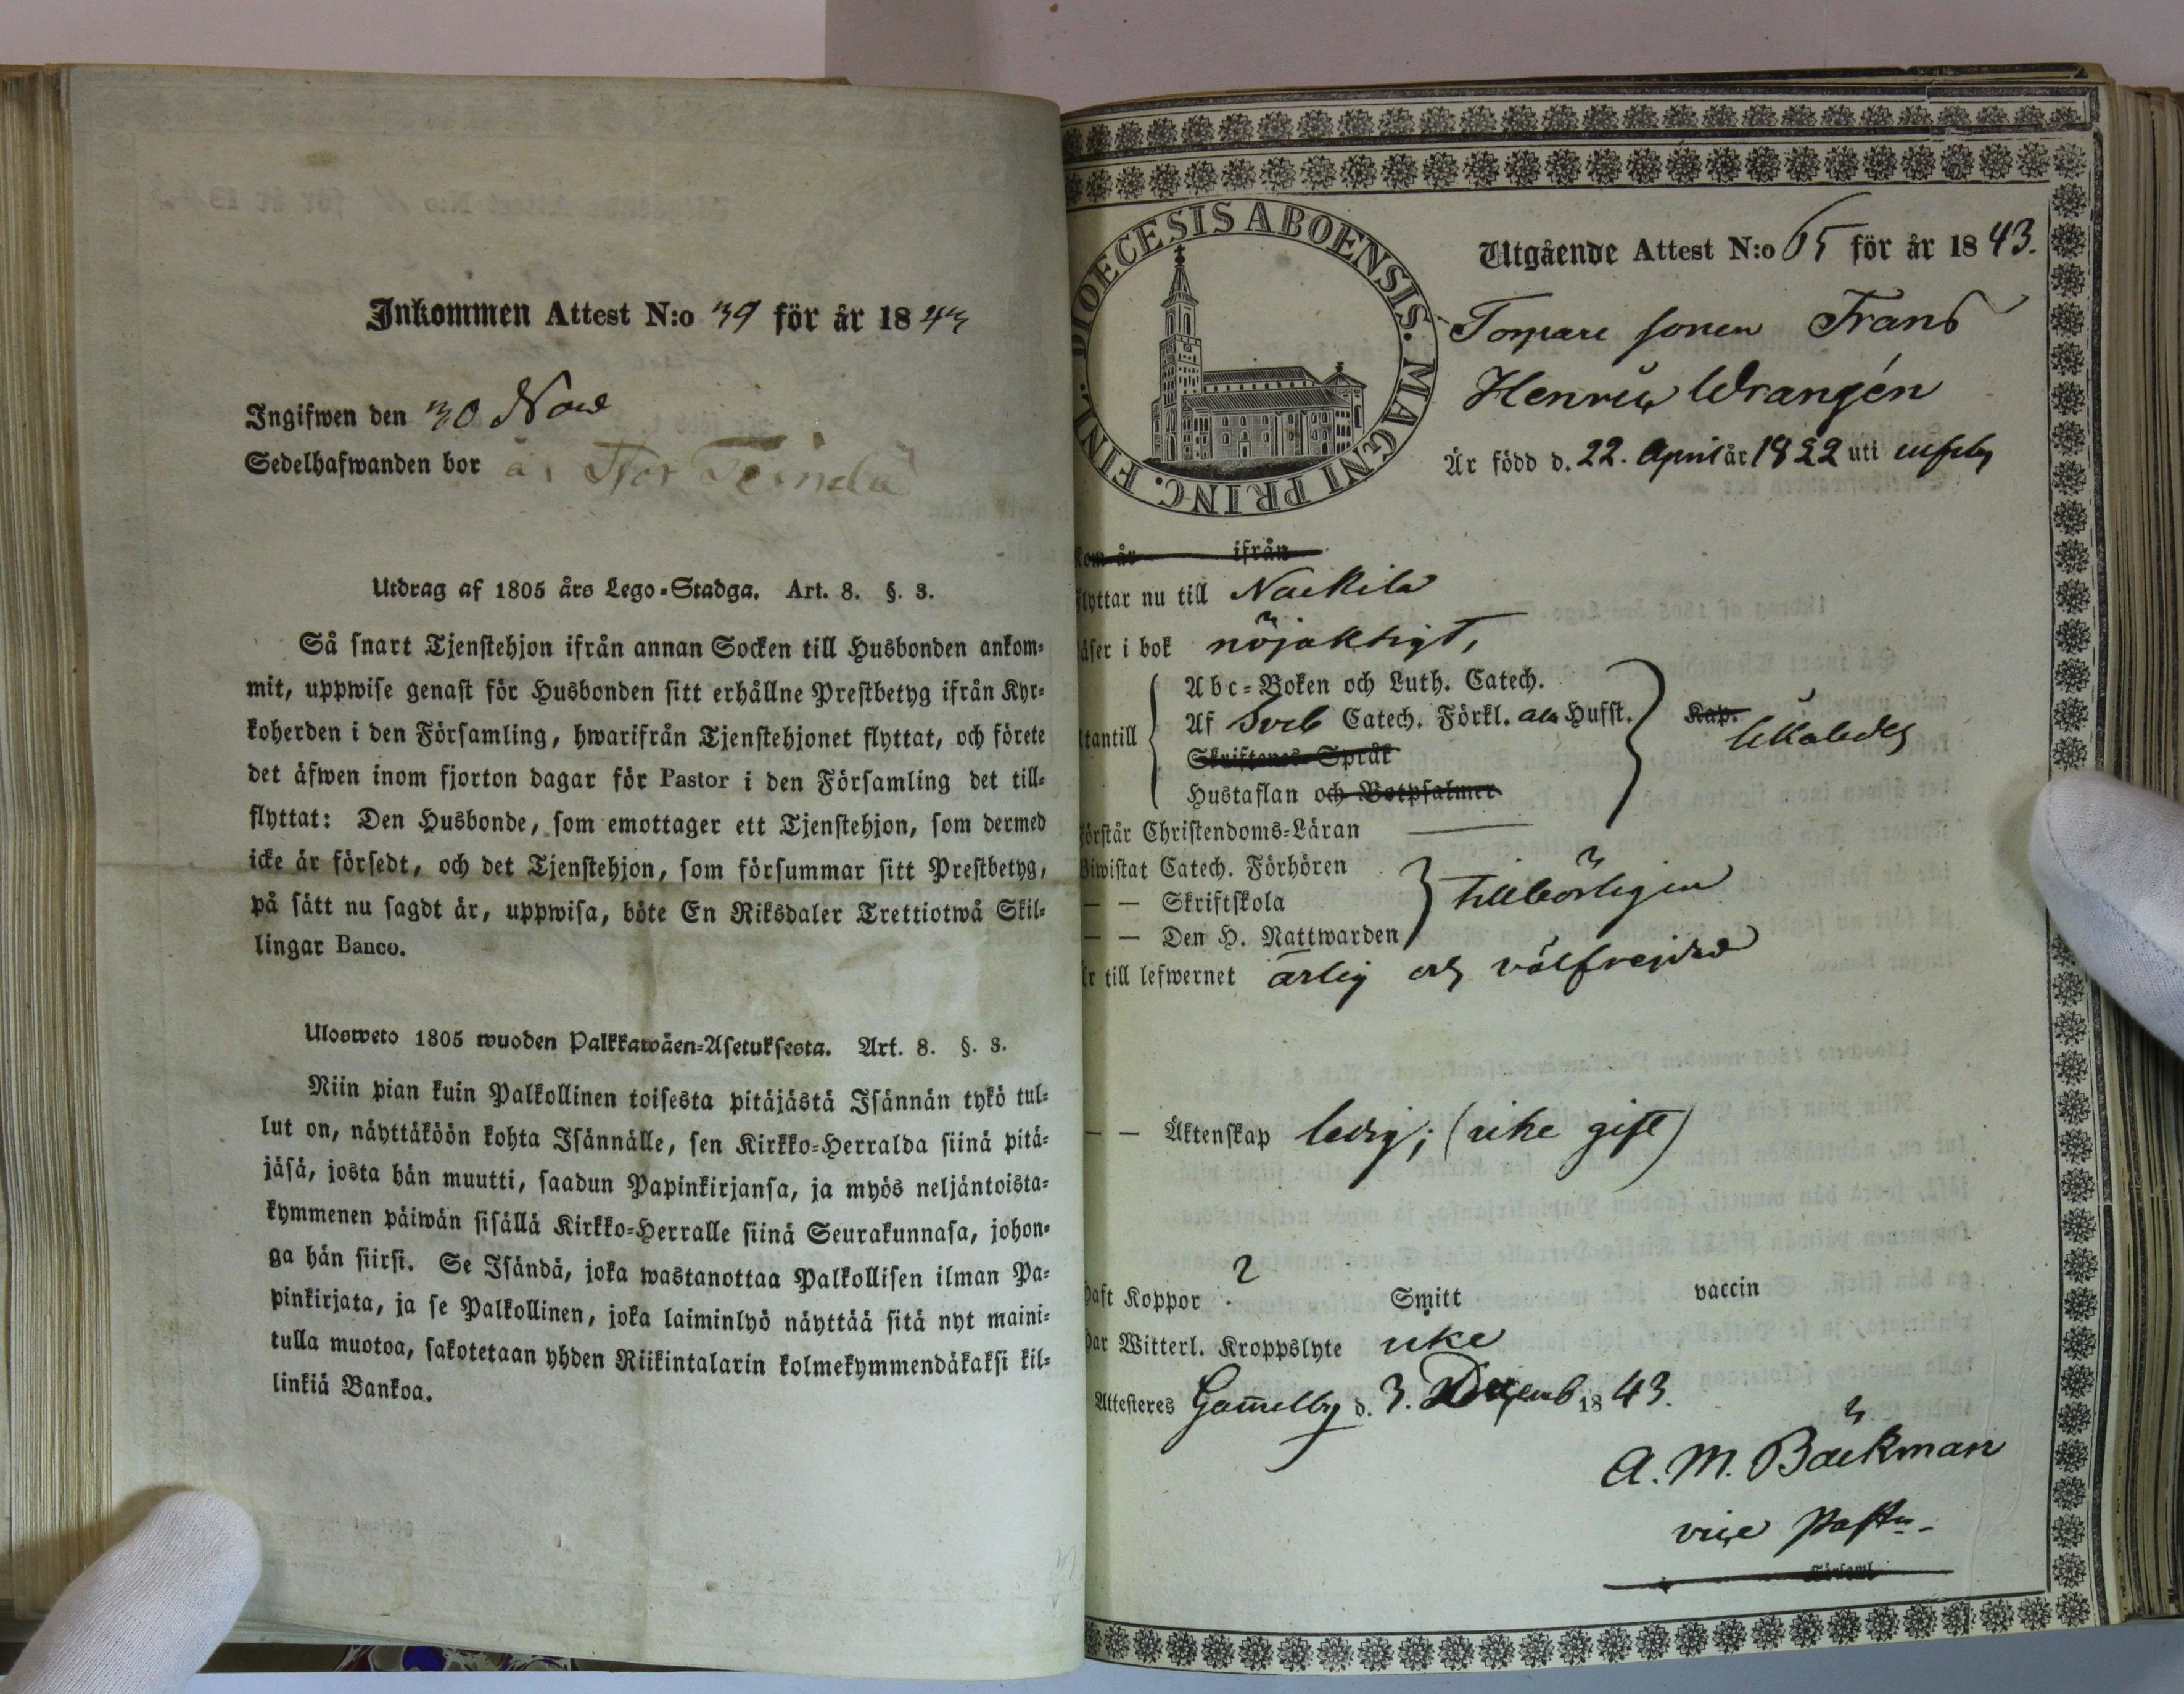 Inkommen Attest N:o 39 för år 1843
Ingifwen den 30 Nov
Sedelhafwanden bor
Utdrag af 1805 års Lego-Stadga. Art. 8. §. 3.
Så snart Tjenstehjon ifrån annan Socken till Husbonden ankom-
mit, uppwise genast för Husbonden sitt erhållne Prestbetyg ifrån Kyr-
koherden i den Församling, hwarifrån Tjenstehjonet flyttat, och förete
det äfwen inom fjorton dagar för Pastor i den Församling det till-
flyttat: Den Husbonde, som emottager ett Tjenstehjon, som dermed
icke är försedt, och det Tjenstehjon, som försummar sitt Prestbetyg,
på sätt nu sagdt är, uppwisa, böte En Riksdaler Trettiotwå Skil-
lingar Banco.
Ulosweto 1805 wuoden Palkkawäen-Asetuksesta. Art. 8. §. 3.
Niin pian kuin Palkollinen toisesta pitäjästä Isännän tykö tul-
lut on, näyttäköön kohta Isännälle, sen Kirkko-Herralda siinä pitä-
jäsä, josta hän muutti, saadun Papinkirjansa, ja myös neljäntoista-
kymmenen päiwän sisällä Kirkko-Herralle siinä Seurakunnasa, johon-
ga hän siirsi. Se Isändä, joka wastanottaa Palkollisen ilman Pa-
pinkirjata, ja se Palkollinen, joka laiminlyö näyttää sitä nyt maini-
tulla muotoa, sakotetaan yhden Riikintalarin kolmekymmendäkaksi kil-
linkiä Bankoa.
DIOECESIS ABOENSIS. MAGNI PRINC. FINL.
Utgående Attest N:o 65 för år 1843.
Torpare sonen Frans
Henric Wrangén
Är född d. 22. April år 1822 uti
Kom år ifrån
flyttar nu till Nackila
läser i bok nöjaktigt,
Abc-Boken och Luth. Catech.
Af Sveb Catech. Förkl. Husst.
Utantill
Kap.
Skriftenes Språk
Hustaflan och Botpsalmer
förstår Christendoms-Läran
Biwistat Catech. Förhören
— — Skriftskola
tillbörligen
— — Den H. Nattwarden
Är till lefwernet ärlig och välfrejdad
— — Äktenskap ledig; (icke gift)
Haft Koppor ? Smitt vaccin
Har Witterl. Kroppslyte icke
Attesteres Gam̅elby d. 3. Decemb 1843.
A. M. Bäckman
vice Pastor
Församl